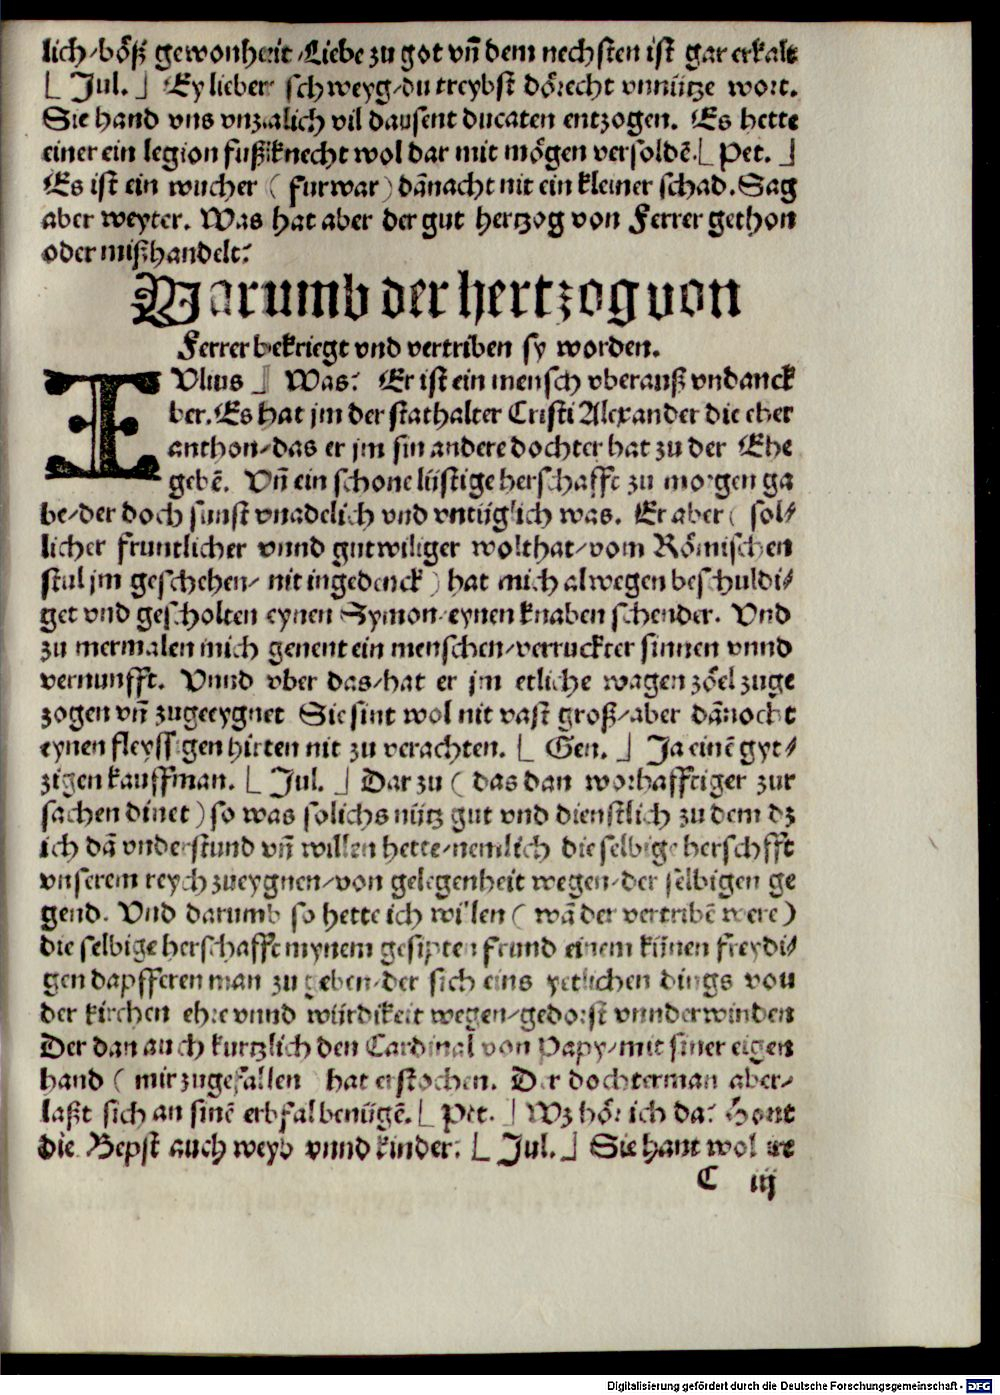 lich/bőß gewonheit/Liebe zu got vñ dem nechsten ist gar erkalt
[ Jul. ] Ey lieber schweyg/du treybst dőrecht vnnütze wort.
Sie hand vns vnzalich vil dausent ducaten entzogen. Es hette
einer ein legion fußknecht wol dar mit mőgen versoldē.[ Pet. ]
Es ist ein wucher ( furwar ) dānacht nit ein kleiner schad. Sag
aber weyter. Was hat aber der gut hertzog von Ferrer gethon
oder mißhandelt?
Warumb der hertzog von
Ferrer bekriegt vnd vertriben sy worden.
IVlius ] Was? Er ist ein mensch vberauß vndanck
ber. Es hat jm der stathalter Cristi Alexander die eher
anthon/das er jm sin andere dochter hat zu der Ehe
gebē. Vñ ein schone lüstige herschafft zu morgen ga
be/der doch sunst vnadelich vnd vntüglich was. Er aber ( sol/
licher fruntlicher vnnd gutwiliger wolthat/vom Rőmischen
stul jm geschehen/ nit ingedenck ) hat mich alwegen beschuldi/
get vnd gescholten eynen Symon/eynen knaben schender. Vnd
zu mermalen mich genent ein menschen/verruckter sinnen vnnd
vernunfft. Vnnd vber das/hat er jm etliche wagen zőel zuge
zogen vñ zugeeygnet Sie sint wol nit vast groß/aber dānocht
eynen fleyssigen hirten nit zu verachten. [ Gen. ] Ja einē gyt/
zigen kauffman. [ Jul. ] Dar zu ( das dan worhafftiger zur
sachen dinet ) so was solichs nütz gut vnd dienstlich zu dem dz
ich dā vnderstund vñ willen hette/nemlich die selbige herschfft
vnserem reych zueygnen/von gelegenheit wegen/der selbigen ge
gend. Vnd darumb so hette ich willen ( wā der vertribē were )
die selbige herschafft mynem gesipten frund einem künen freydi/
gen dapfferen man zu geben/der sich eins yetlichen dings von
der kirchen ehre vnnd würdikeit wegen/gedorst vnnderwinden
Der dan auch kurtzlich den Cardinal von Papy/mit siner eigen
hand ( mir zugefallen ) hat erstochen. Der dochterman aber/
laßt sich an sinē erbfal benügē.[ Pet. ] Wz hőr ich da? Hont
die Bepst auch weyb vnnd kinder? [ Jul. ] Sie hant wol ire
C iij
Digitalisierung gefördert durch die Deutsche Forschungsgemeinschaft - DFG